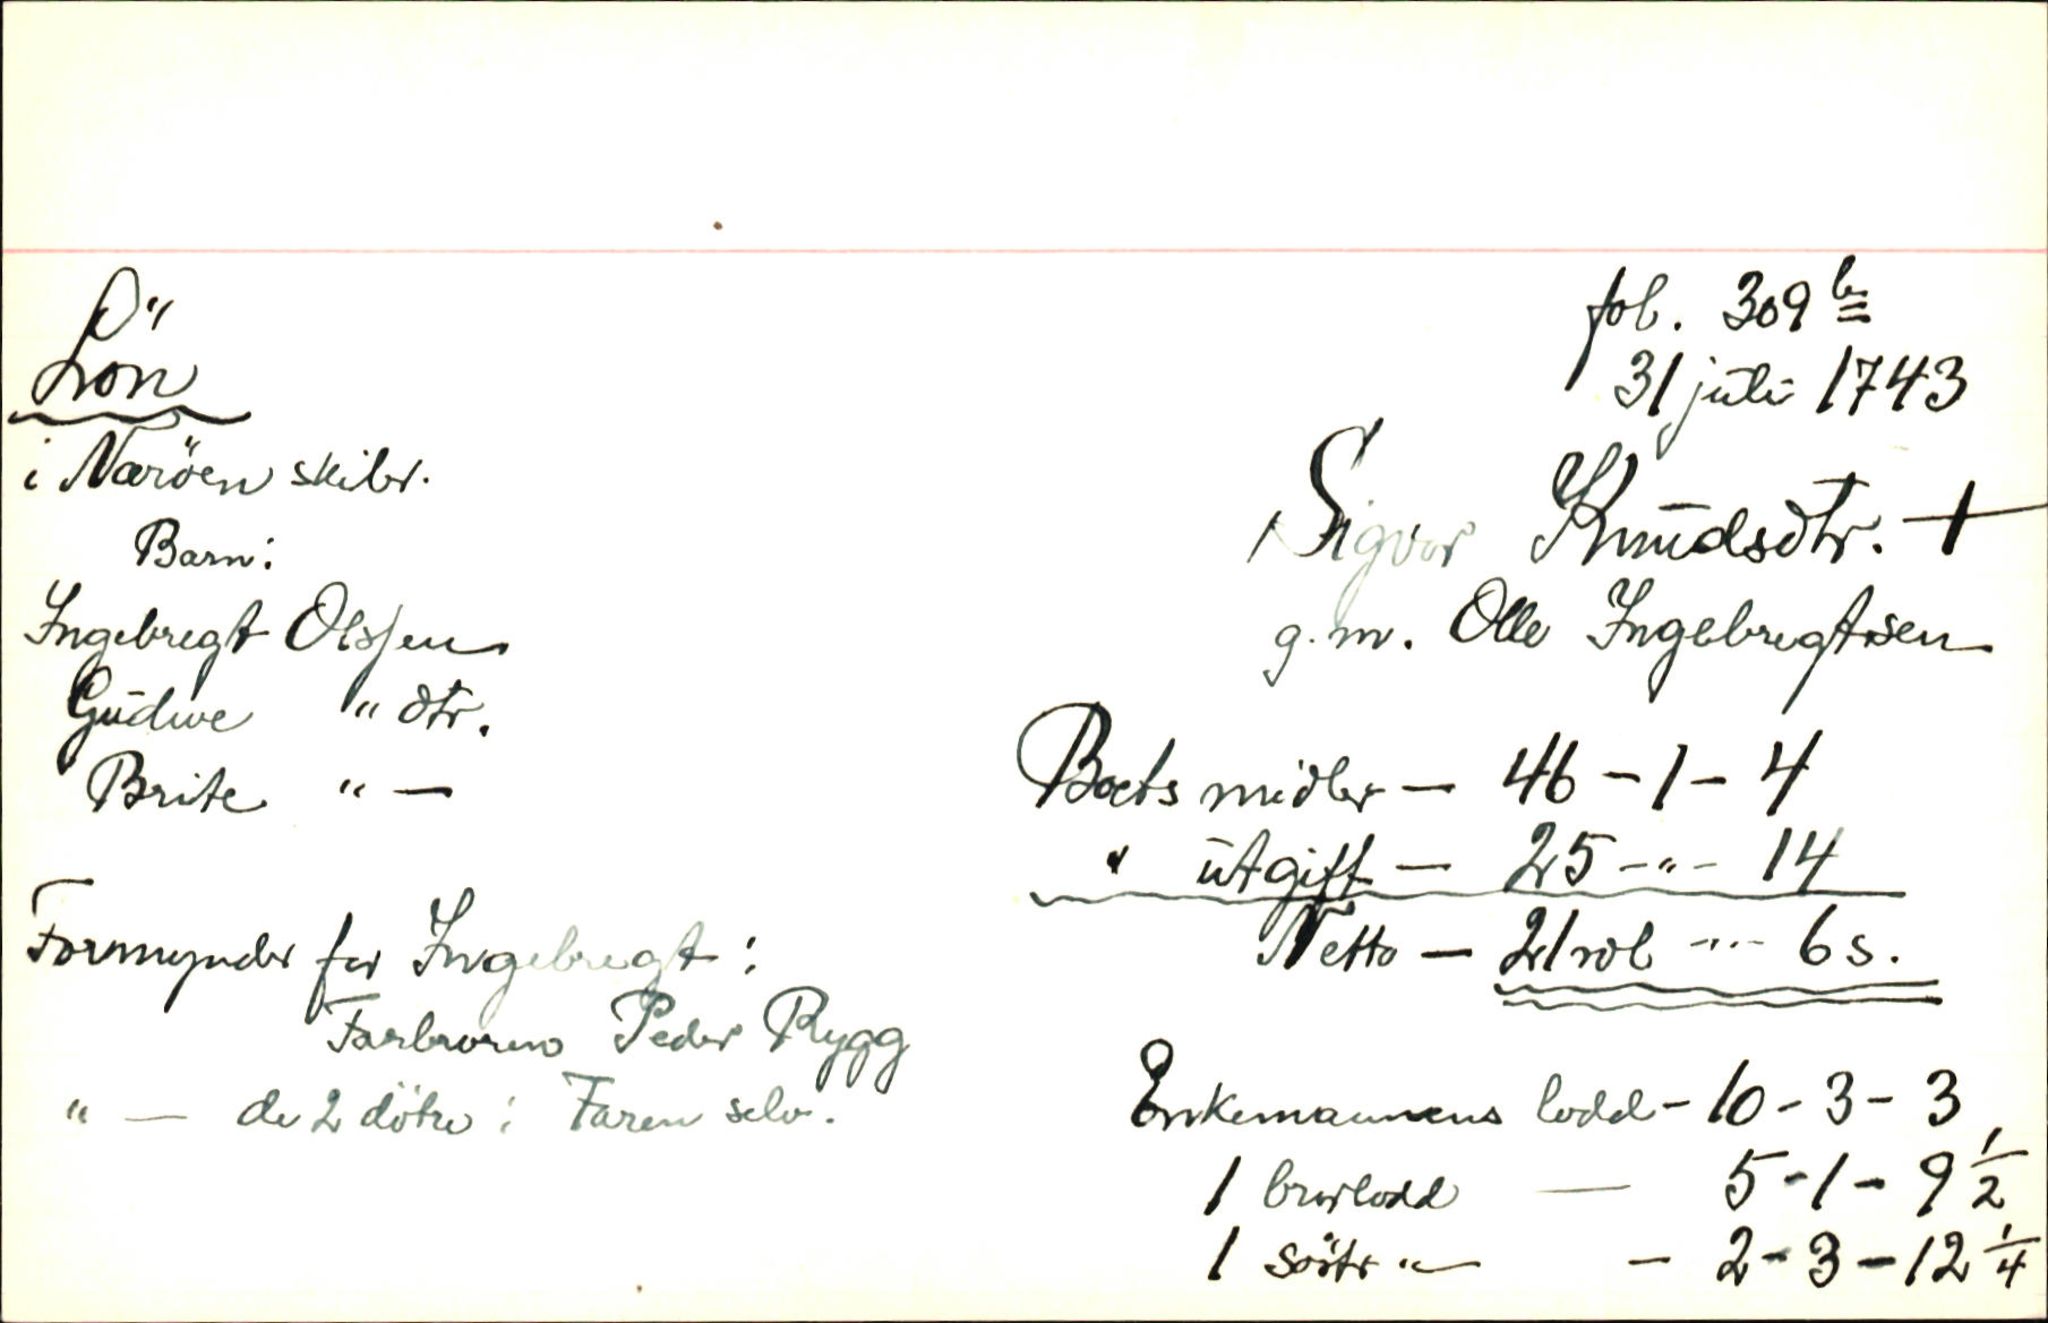 Lön
i Næröen skibr.
Barn:
Ingebregt Olssen
Gudwe " dtr.
Brite " —
Formynder for Ingebregt:
Farbroren Peder Rygg
" — de 2 dötre: Faren selv.
fol. 309 b
31 juli 1743
Sigvor Knudsdtr. +
g.m. Olle Ingebregtsen
Boets midler — 46 - 1 - 4
" utgift — 25 - " - 14
Netto — 21 rdl - " - 6 s.
Enkemannens lodd - 10 - 3 - 3
1 brorlodd — 5 - 1 - 9 1/2
1 söstr " — - 2 - 3 - 12 1/4